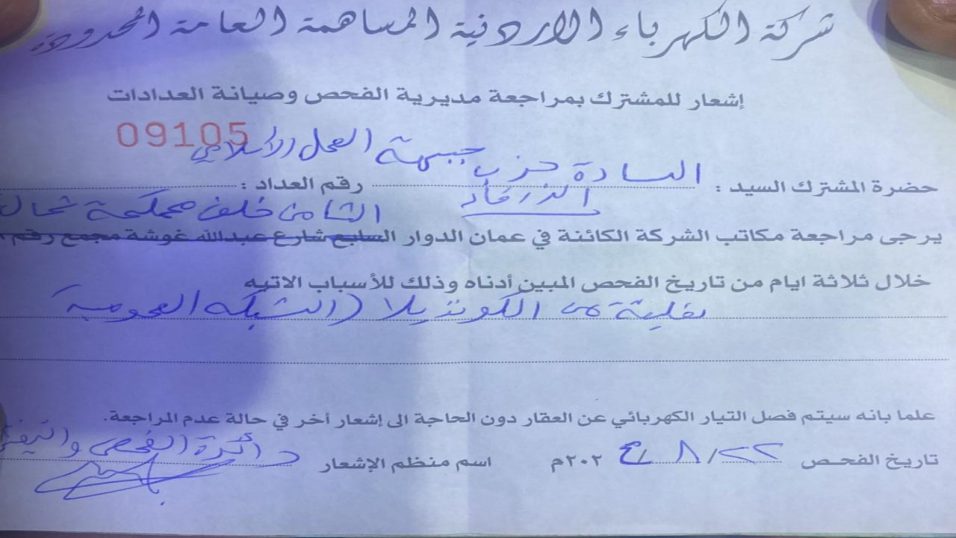 شركة الكهرباء الاردنية المساهمة العامة المحدودة
إشعار للمشترك بمراجعة مديرية الفحص وصيانة العدادات
09105
حضرة المشترك السيد : السادة حزب جبهة العمل الاسلامي رقم العداد :
الزرقاء
الثامن خلف محكمة شمال
يرجى مراجعة مكاتب الشركة الكائنة في عمان الدوار السابع شارع عبدالله غوشة مجمع رقم
خلال ثلاثة ايام من تاريخ الفحص المبين أدناه وذلك للأسباب الاتيه
تغذية من (الشبكه العمومية)
علما بانه سيتم فصل التيار الكهربائي عن العقار دون الحاجة الى إشعار أخر في حالة عدم المراجعة.
تاريخ الفحص ٢٢/٨/ ٢٠٢٤م اسم منظم الإشعار دائرة الفحص